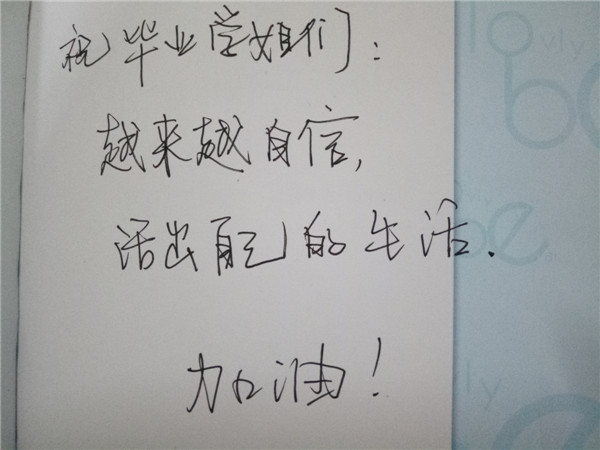 祝毕业学姐们：
越来越自信，
活出自己的生活.
加油！
lo
vly
be
vly
be
ly
e